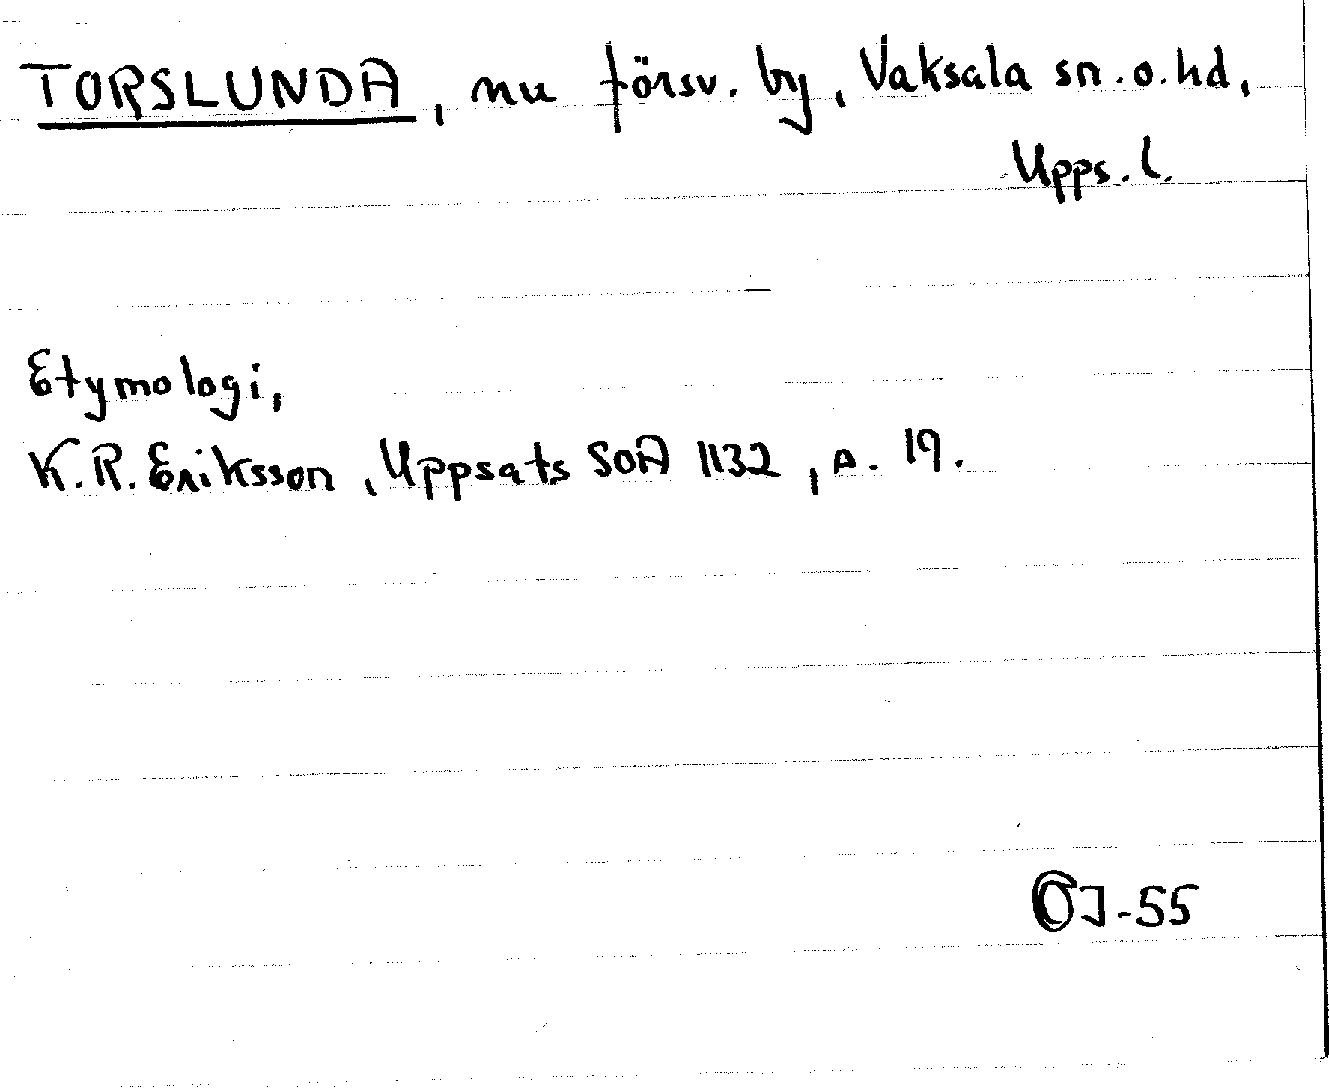 TORSLUNDA, nu försv. by, Vaksala sn. o. hd,
Upps. l.
Etymologi,
K. R. Eriksson, Uppsats SOA 1132, s. 19.
OJ-55